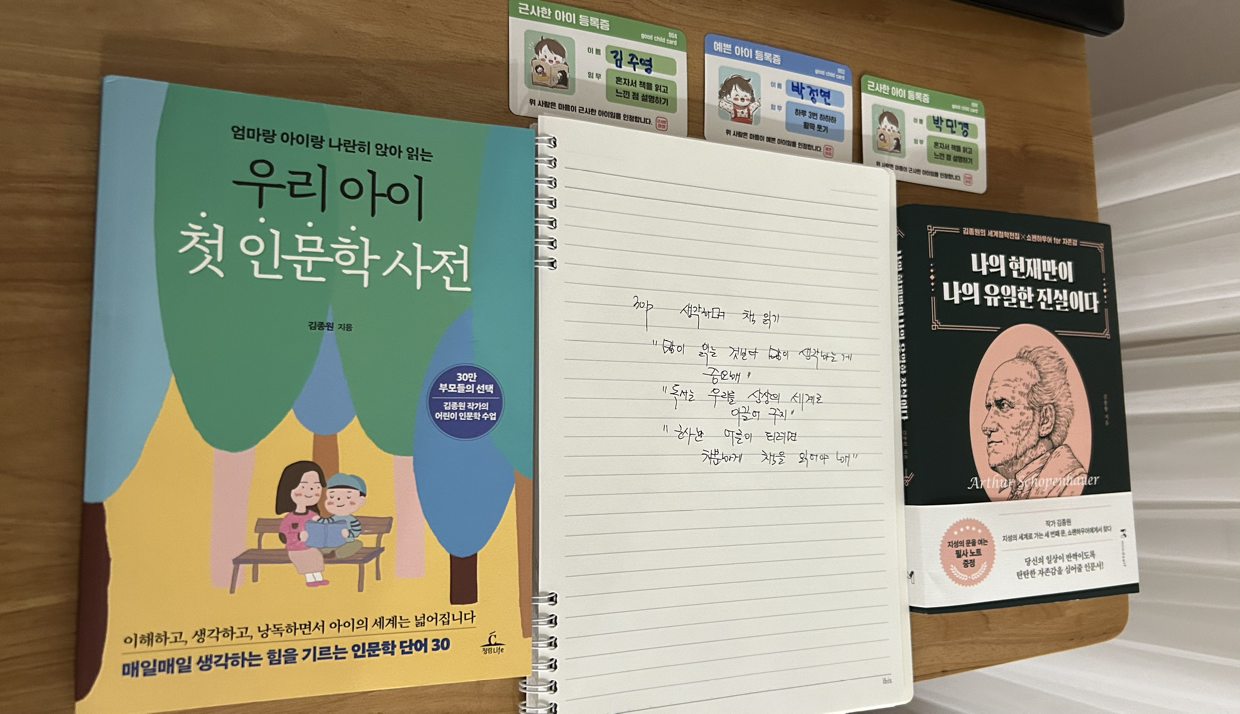 근사한 아이 등록증
004
good child card
이 름 김주영
임 무 혼자서 책을 읽고
느낀 점 설명하기
위 사람은 마음이 근사한 아이임을 인정합니다.
예쁜 아이 등록증
003
good child card
이 름 박정면
임 무 하루 3번 하하하
활짝 웃기
위 사람은 마음이 예쁜 아이임을 인정합니다.
근사한 아이 등록증
good child card
이 름 박민갱
임 무 혼자서 책을 읽고
느낀 점 설명하기
위 사람은 마음이 근사한 아이임을 인정합니다.
엄마랑 아이랑 나란히 앉아 읽는
우리 아이
첫 인문학 사전
김종원 지음
30만
부모들의 선택
김종원 작가의
어린이 인문학 수업
이해하고, 생각하고, 낭독하면서 아이의 세계는 넓어집니다
매일매일 생각하는 힘을 기르는 인문학 단어 30
청림Life
30p 생각하며 책 읽기
"많이 읽는 것보다 많이 생각하는 게
중요해"
"독서는 우리를 상상의 세계로
이끌어 주지"
"근사한 어른이 되려면
차분하게 책을 읽어야 해"
김종원의 세계철학전집×쇼펜하우어 for 자존감
나의 현재만이
나의 유일한 진실이다
김종원 지음
Arthur Schopenhauer
지성의 문을 여는
필사 노트
증정
작가 김종원
지성의 세계로 가는 세 번째 문, 쇼펜하우어에게서 찾다
당신의 일상이 반짝이도록
탄탄한 자존감을 심어줄 인문서!